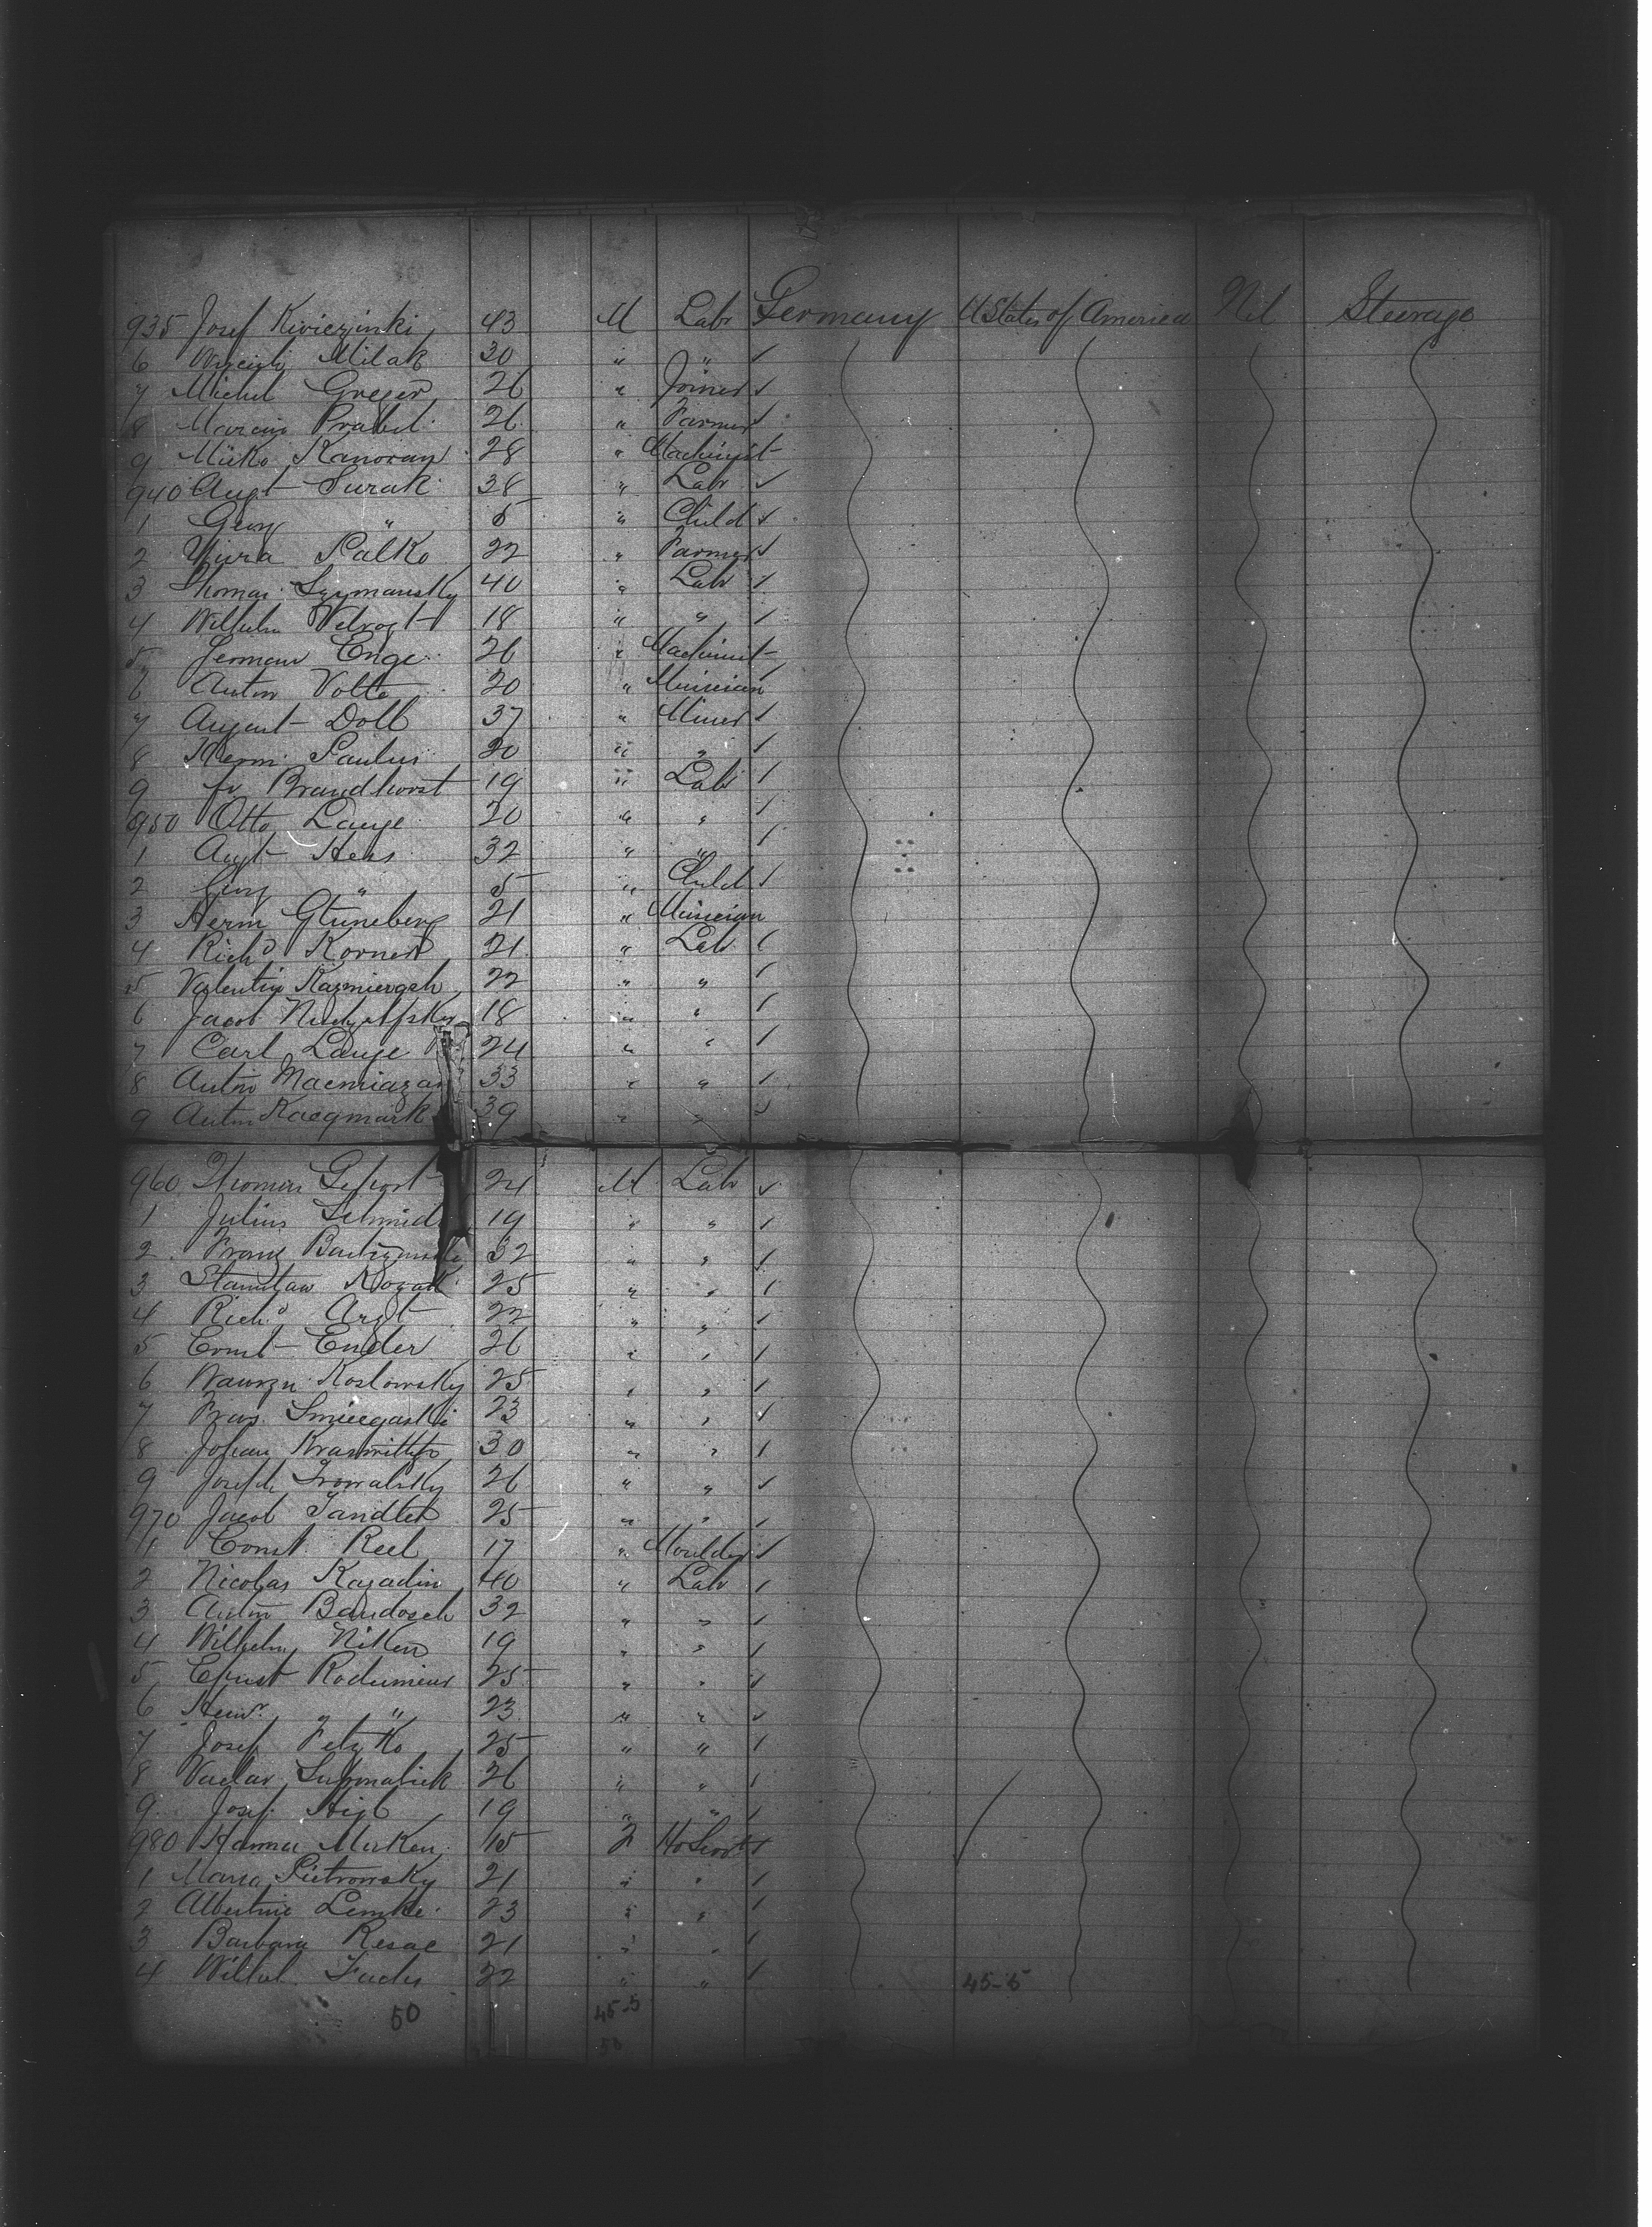 935 Josef Kiviezinki 43 M Labr Germany U States of America Nil Steerage
6 Milak 30 " " ✓
7 Michel Greger 26 " Joiner ✓
8 Marcin Prabel 26 " Farmer ✓
9 Miiko Kanovan 28 " Machinist
940 Augt Surak 38 " Labr ✓
1 Georg " 5 " Child ✓
2 Palko 22 " Farmer ✓
3 Thomas Szymansky 40 " Labr ✓
4 Wilhelm 18 " " ✓
5 Herman Enge 26 " Machinist
6 Anton Volte 20 " Musician
7 August Doll 37 " Miner ✓
8 Herm Paulus 20 " " ✓
9 fr. Brandhorst 19 " Labr ✓
950 Otto Lange 20 " " ✓
1 Augt Hess 32 " " ✓
2 Georg " 5 " Child ✓
3 Herm Gruneberg 21 " Musician
4 Richd Korner 21 " Labr ✓
5 Valentin 22 " " ✓
6 Jacob 18 " " ✓
7 Carl Lange 24 " " ✓
8 Anton 33 " " ✓
9 Anton Kacqmark 39 " " ✓
960 Thomas 24 M Labr ✓
1 Julius Schmid 19 " " ✓
2 Franz 32 " " ✓
3 Stanislaw Novak 25 " " ✓
4 Richd Argt 22 " " ✓
5 Ernst Ender 26 " " ✓
6 Koslowsky 25 " " ✓
7 Franz 23 " " ✓
8 Johan 30 " " ✓
9 Joseph 26 " " ✓
970 Jacob Tandler 25 " " ✓
1 Ernst Reel 17 " Moulder ✓
2 Nicolas Kazadin 40 " Labr ✓
3 Anton Bandosch 32 " " ✓
4 Wilhelm Niken 19 " " ✓
5 Ernst 25 " " ✓
6 Heinr " " 23 " " ✓
7 Josef Fetzko 25 " " ✓
8 Vaclav 26 " " ✓
9 Josef 19 " " ✓
980 Hanna 15 F ✓
1 Maria Pietrowsky 21 " " ✓
2 Albertine Lemke 23 " " ✓
3 Barbara Resae 21 " " ✓
4 Wilhel. Fuchs 22 " " ✓ 45-5
50 45-5
50